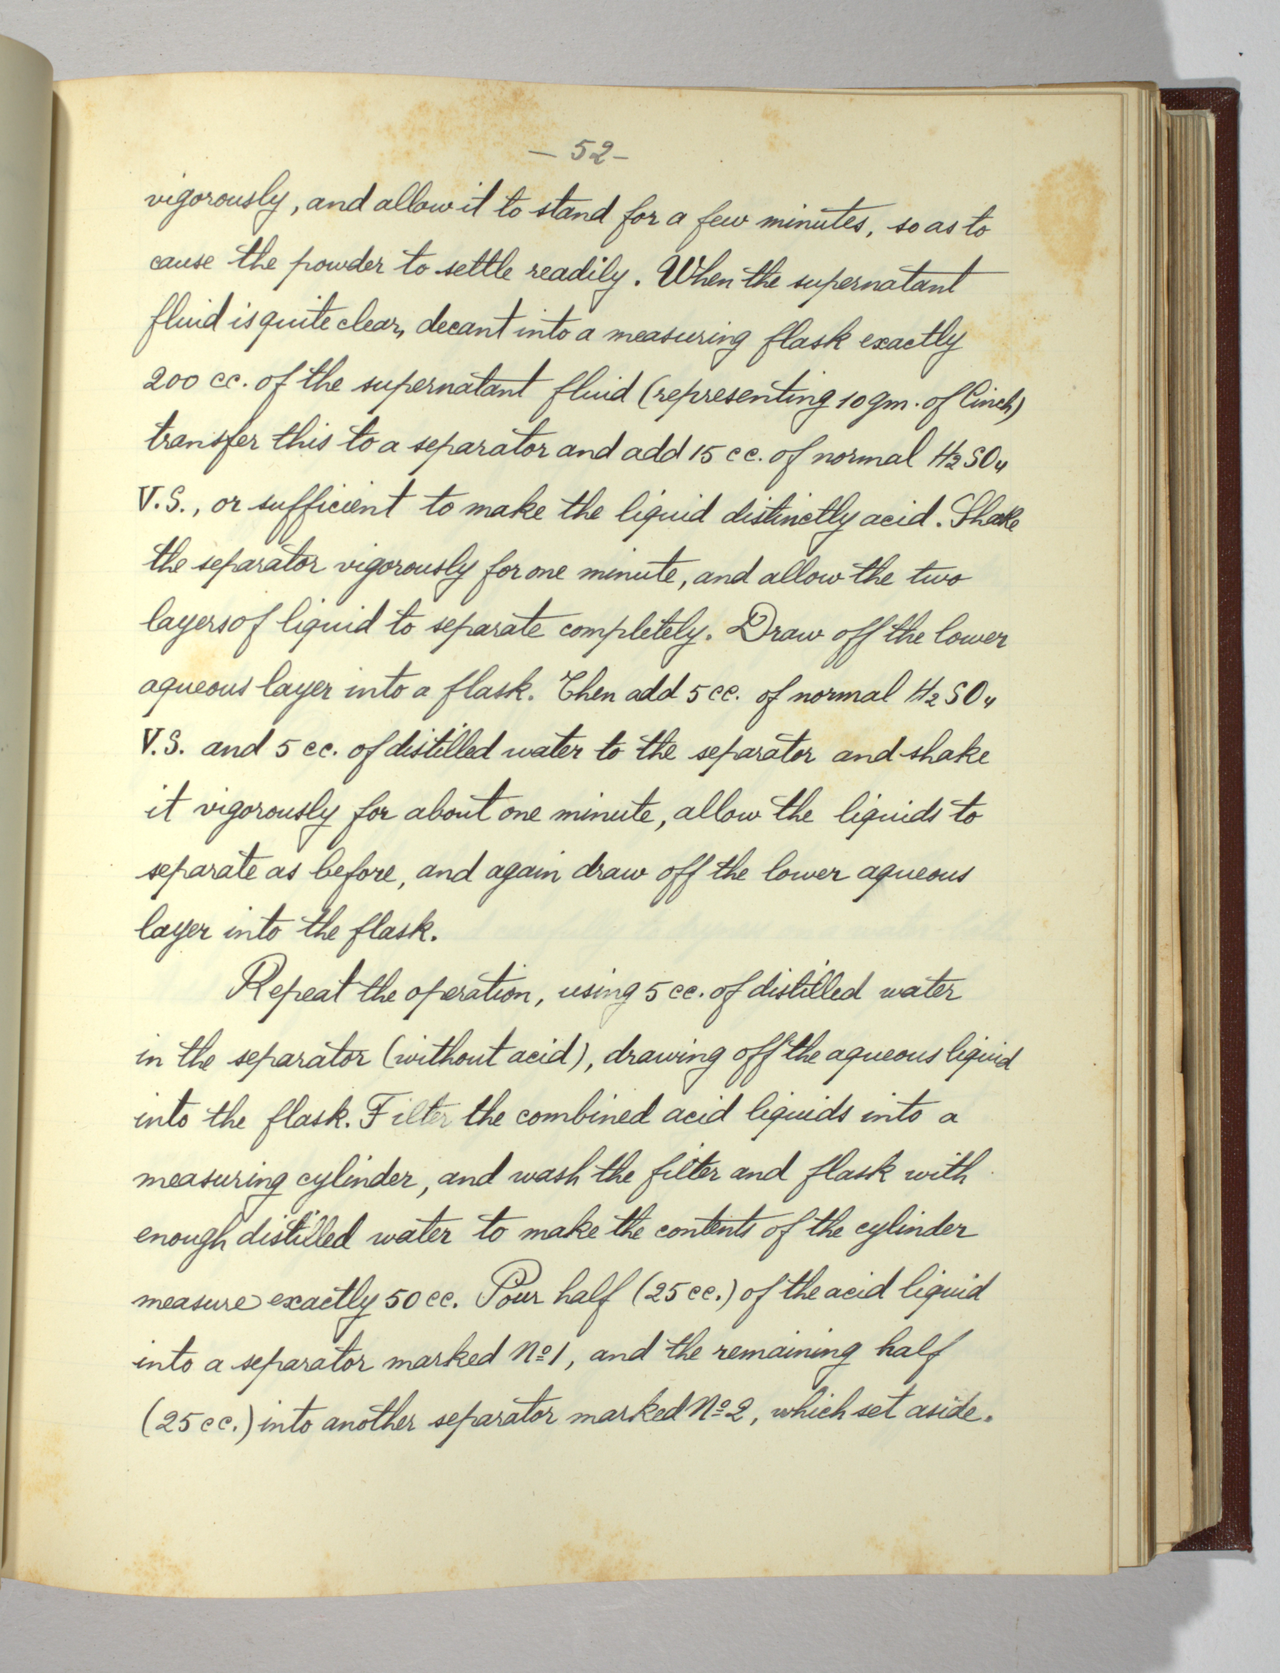 — 52 –
vigorously, and allow it to stand for a few minutes, so as to
cause the powder to settle readily. When the supernatant
fluid is quite clear, decant into a measuring flask exactly
200 cc. of the supernatant fluid (representing 10 gm. of Cinch)
transfer this to a separator and add 15 cc. of normal H₂SO₄
V.S., or sufficient to make the liquid distinctly acid. Shake
the separator vigorously for one minute, and allow the two
layers of liquid to separate completely. Draw off the lower
aqueous layer into a flask. Then add 5 cc. of normal H₂SO₄
V.S. and 5 cc. of distilled water to the separator and shake
it vigorously for about one minute, allow the liquids to
separate as before, and again draw off the lower aqueous
layer into the flask.
Repeat the operation, using 5 cc. of distilled water
in the separator (without acid), drawing off the aqueous liquid
into the flask. Filter the combined acid liquids into a
measuring cylinder, and wash the filter and flask with
enough distilled water to make the contents of the cylinder
measure exactly 50 cc. Pour half (25 cc.) of the acid liquid
into a separator marked Nº 1, and the remaining half
(25 cc.) into another separator marked Nº 2, which set aside.